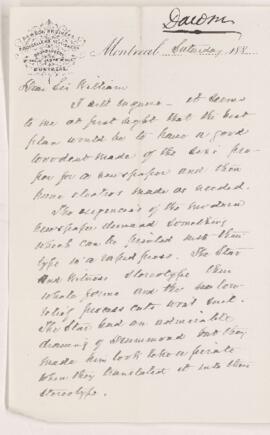 Dawson
Montreal Saturday 188
Dear Sir William
I will enquire - it seems
to me at first sight that the best
plan would be to have a good
woodcut made of the size pro-
per for a newspaper and then
have electros made as needed.
The exigencies of the modern
newspaper demand something
which can be printed with their
type in a rapid press. The Star
and Witness stereotype their
whole forms and the low
relief process cuts won't suit.
The Star had an admirable
drawing of Drummond but they
made him look like a pirate
when they translated it into their
stereotype.